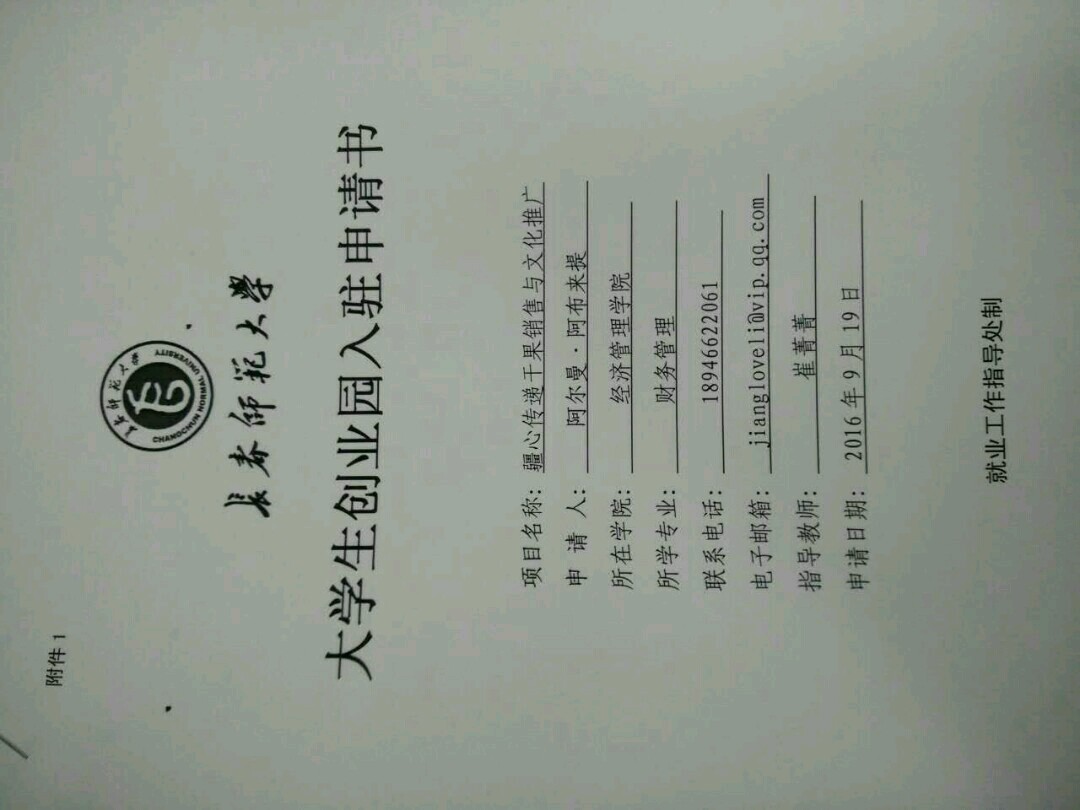 附件1
长春师范大学
CHANGCHUN NORMAL UNIVERSITY
長春师范大學
大学生创业园入驻申请书
项目名称：疆心传递干果销售与文化推广
申 请 人：阿尔曼·阿布来提
所在学院：经济管理学院
所学专业：财务管理
联系电话：18946622061
电子邮箱：jiangloveli@vip.qq.com
指导教师：崔菁菁
申请日期：2016年9月19日
就业工作指导处制